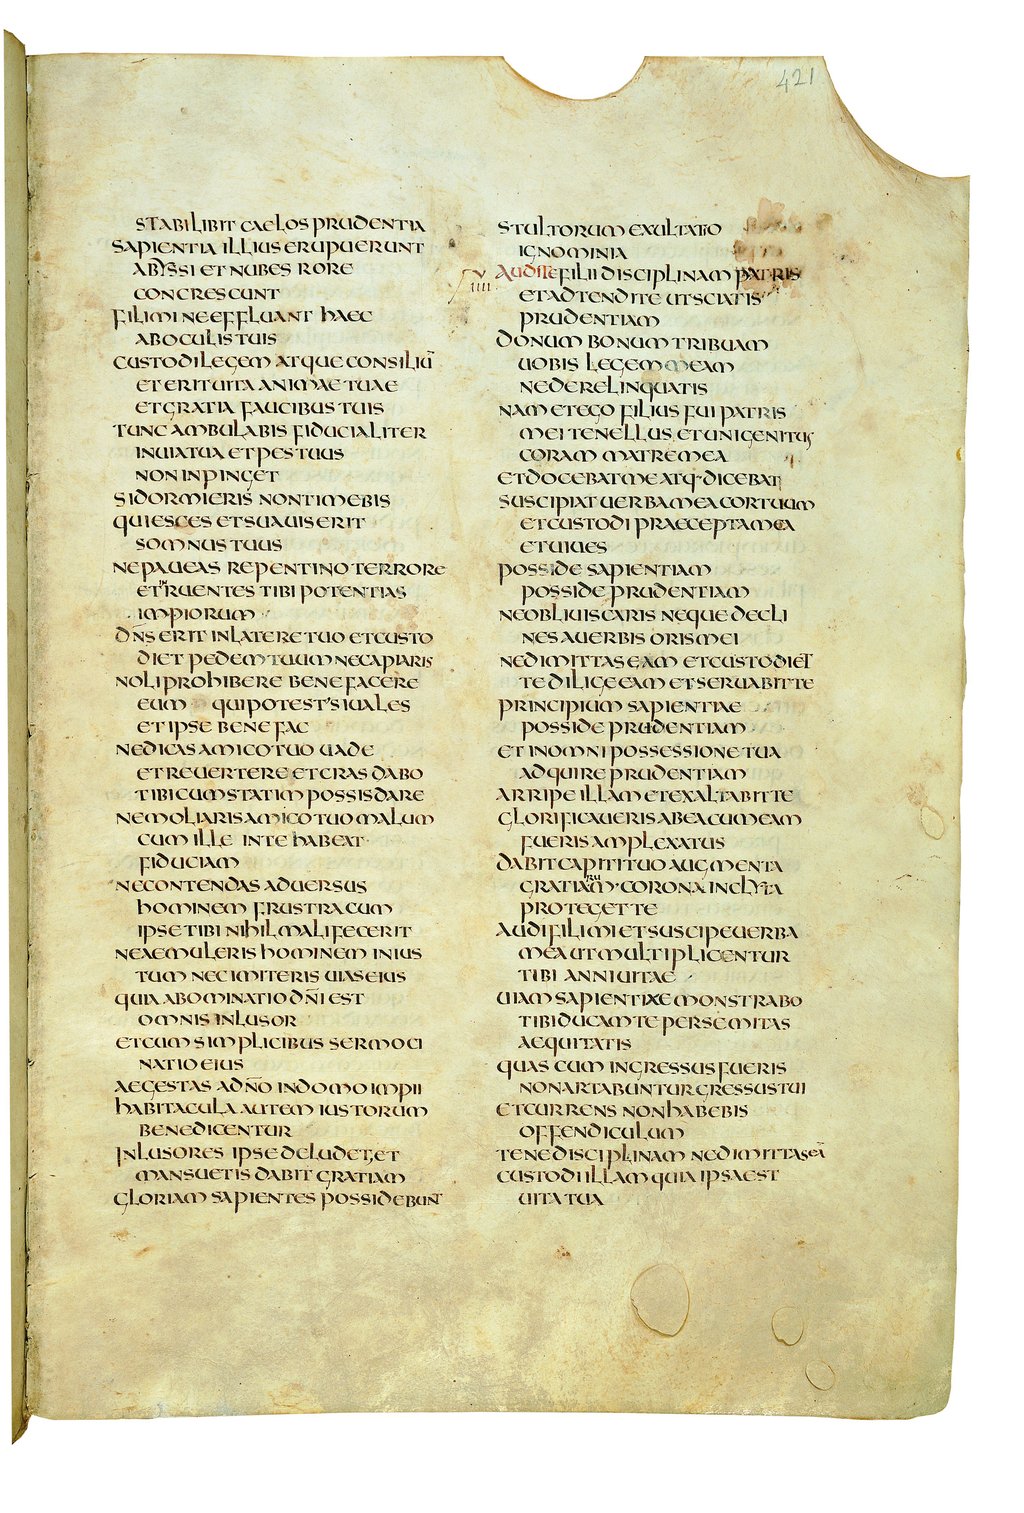 421
STABILIBIT CAELOS PRUDENTIA
SAPIENTIA ILLIUS ERUPUERUNT
ABYSSI ET NUBES RORE
CONCRESCUNT
FILI MI NE EFFLUANT HAEC
AB OCULIS TUIS
CUSTODI LEGEM ATQUE CONSILIŪ
ET ERIT UITA ANIMAE TUAE
ET GRATIA FAUCIBUS TUIS
TUNC AMBULABIS FIDUCIALITER
IN UIA TUA ET PES TUUS
NON INPINGET
SI DORMIERIS NON TIMEBIS
QUIESCES ET SUAUIS ERIT
SOMNUS TUUS
NE PAUEAS REPENTINO TERRORE
ET INRUENTES TIBI POTENTIAS
IMPIORUM
DN̄S ERIT IN LATERE TUO ET CUSTO
DIET PEDEM TUUM NE CAPIARIS
NOLI PROHIBERE BENEFACERE
EUM QUI POTEST SI UALES
ET IPSE BENEFAC
NE DICAS AMICO TUO UADE
ET REUERTERE ET CRAS DABO
TIBI CUM STATIM POSSIS DARE
NE MOLIARIS AMICO TUO MALUM
CUM ILLE IN TE HABEAT
FIDUCIAM
NE CONTENDAS ADUERSUS
HOMINEM FRUSTRA CUM
IPSE TIBI NIHIL MALI FECERIT
NE AEMULERIS HOMINEM INIUS
TUM NEC IMITERIS UIAS EIUS
QUIA ABOMINATIO DN̄I EST
OMNIS INLUSOR
ET CUM SIMPLICIBUS SERMOCI
NATIO EIUS
AEGESTAS A DN̄O IN DOMO IMPII
HABITACULA AUTEM IUSTORUM
BENEDICENTUR
INLUSORES IPSE DELUDET ET
MANSUETIS DABIT GRATIAM
GLORIAM SAPIENTES POSSIDEBUNT
STULTORUM EXULTATIO
IGNOMINIA
IIII AUDITE FILII DISCIPLINAM PATRIS
ET ADTENDITE UT SCIATIS
PRUDENTIAM
DONUM BONUM TRIBUAM
UOBIS LEGEM MEAM
NE DERELINQUATIS
NAM ET EGO FILIUS FUI PATRIS
MEI TENELLUS ET UNIGENITUS
CORAM MATRE MEA
ET DOCEBAT ME ATQ· DICEBAT
SUSCIPIAT UERBA MEA COR TUUM
ET CUSTODI PRAECEPTA MEA
ET UIUES
POSSIDE SAPIENTIAM
POSSIDE PRUDENTIAM
NE OBLIUISCARIS NEQUE DECLI
NES A UERBIS ORIS MEI
NE DIMITTAS EAM ET CUSTODIET
TE DILIGE EAM ET SERUABIT TE
PRINCIPIUM SAPIENTIAE
POSSIDE PRUDENTIAM
ET IN OMNI POSSESSIONE TUA
ADQUIRE PRUDENTIAM
ARRIPE ILLAM ET EXALTABIT TE
GLORIFICAUERIS AB EA CUM EAM
FUERIS AMPLEXATUS
DABIT CAPITI TUO AUGMENTA
GRATIARUM CORONA INCLYTA
PROTEGET TE
AUDI FILI MI ET SUSCIPE UERBA
MEA UT MULTIPLICENTUR
TIBI ANNI UITAE
UIAM SAPIENTIAE MONSTRABO
TIBI DUCAM TE PER SEMITAS
AEQUITATIS
QUAS CUM INGRESSUS FUERIS
NON ARTABUNTUR GRESSUS TUI
ET CURRENS NON HABEBIS
OFFENDICULUM
TENE DISCIPLINAM NE DIMITTAS EĀ
CUSTODI ILLAM QUIA IPSA EST
UITA TUA